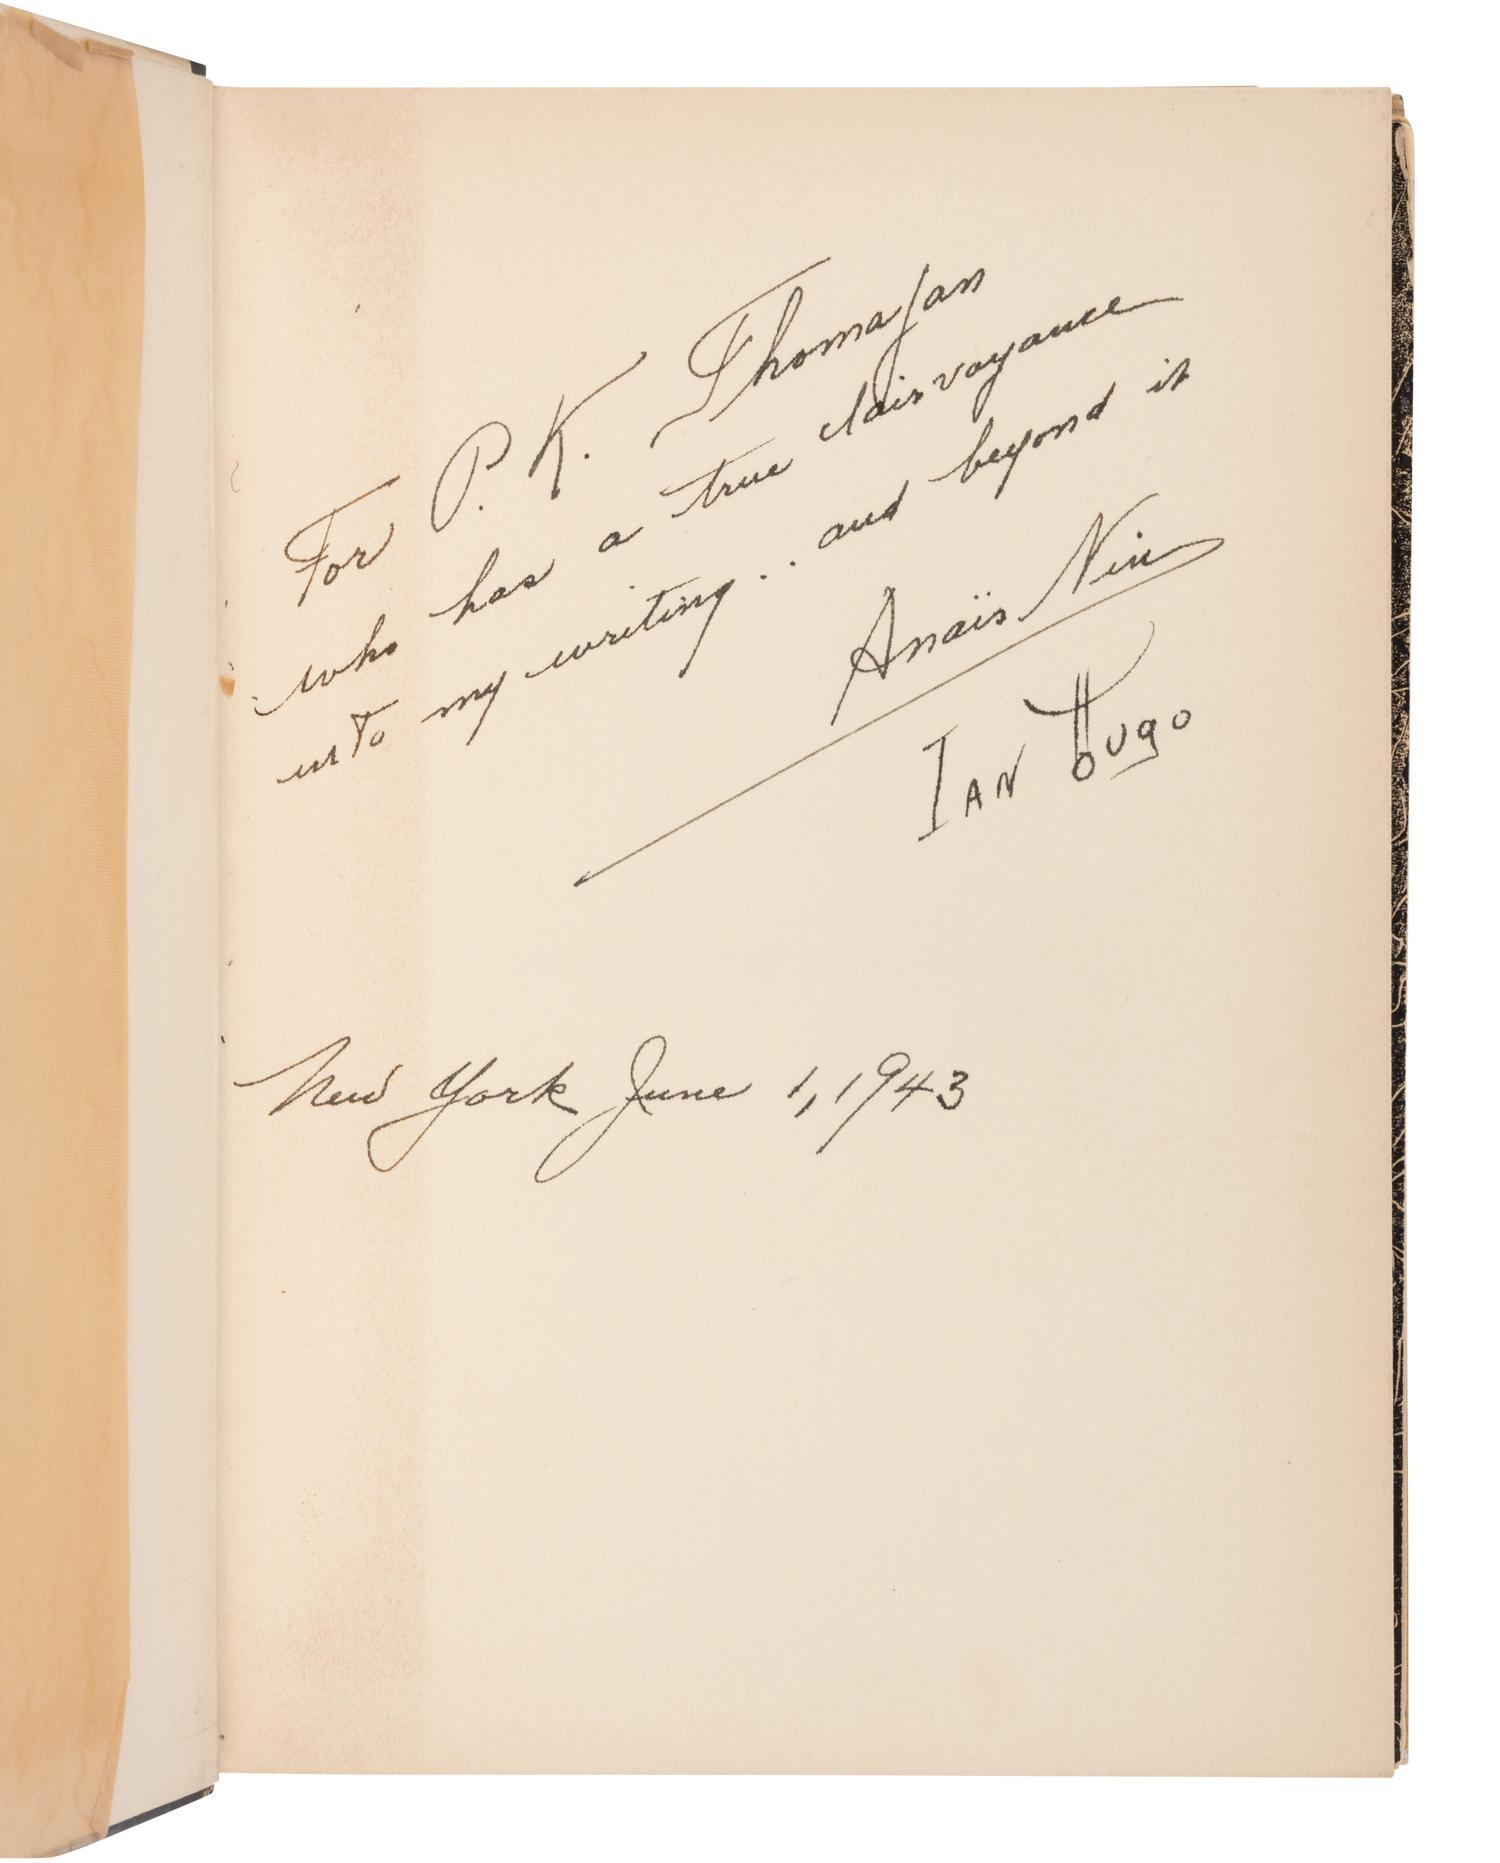 For P. K. Thomajan
who has a true clairvoyance
into my writing.. and beyond it
Anaïs Nin
Ian Hugo
New York June 1, 1943